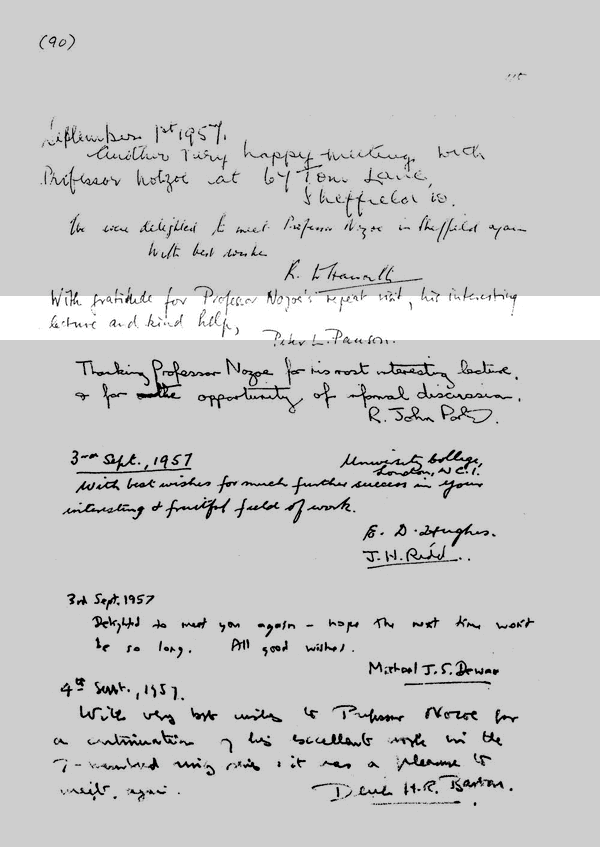 (90)
September 1st 1957.
Another very happy meeting with
Professor Nozoe at 67 Tom Lane,
Sheffield 10.
We were delighted to meet Professor Nozoe in Sheffield again
With best wishes
R. D. Haworth
With gratitude for Professor Nozoe's repeat visit, his interesting
lecture and kind help,
Peter L. Pauson.
Thanking Professor Nozoe for his most interesting lecture,
& for the opportunity of informal discussion.
R. John
3rd Sept., 1957
University College,
London, W.C.1.
With best wishes for much further success in your
interesting & fruitful field of work.
E. D. Hughes.
J. H. Ridd.
3rd Sept. 1957
Delighted to meet you again - hope the next time won't
be so long. All good wishes.
Michael J. S. Dewar
4th Sept., 1957.
With very best wishes to Professor Nozoe for
a continuation of his excellent work in the
7-membered ring series : it was a pleasure to
meet again.
Derek H. R. Barton.